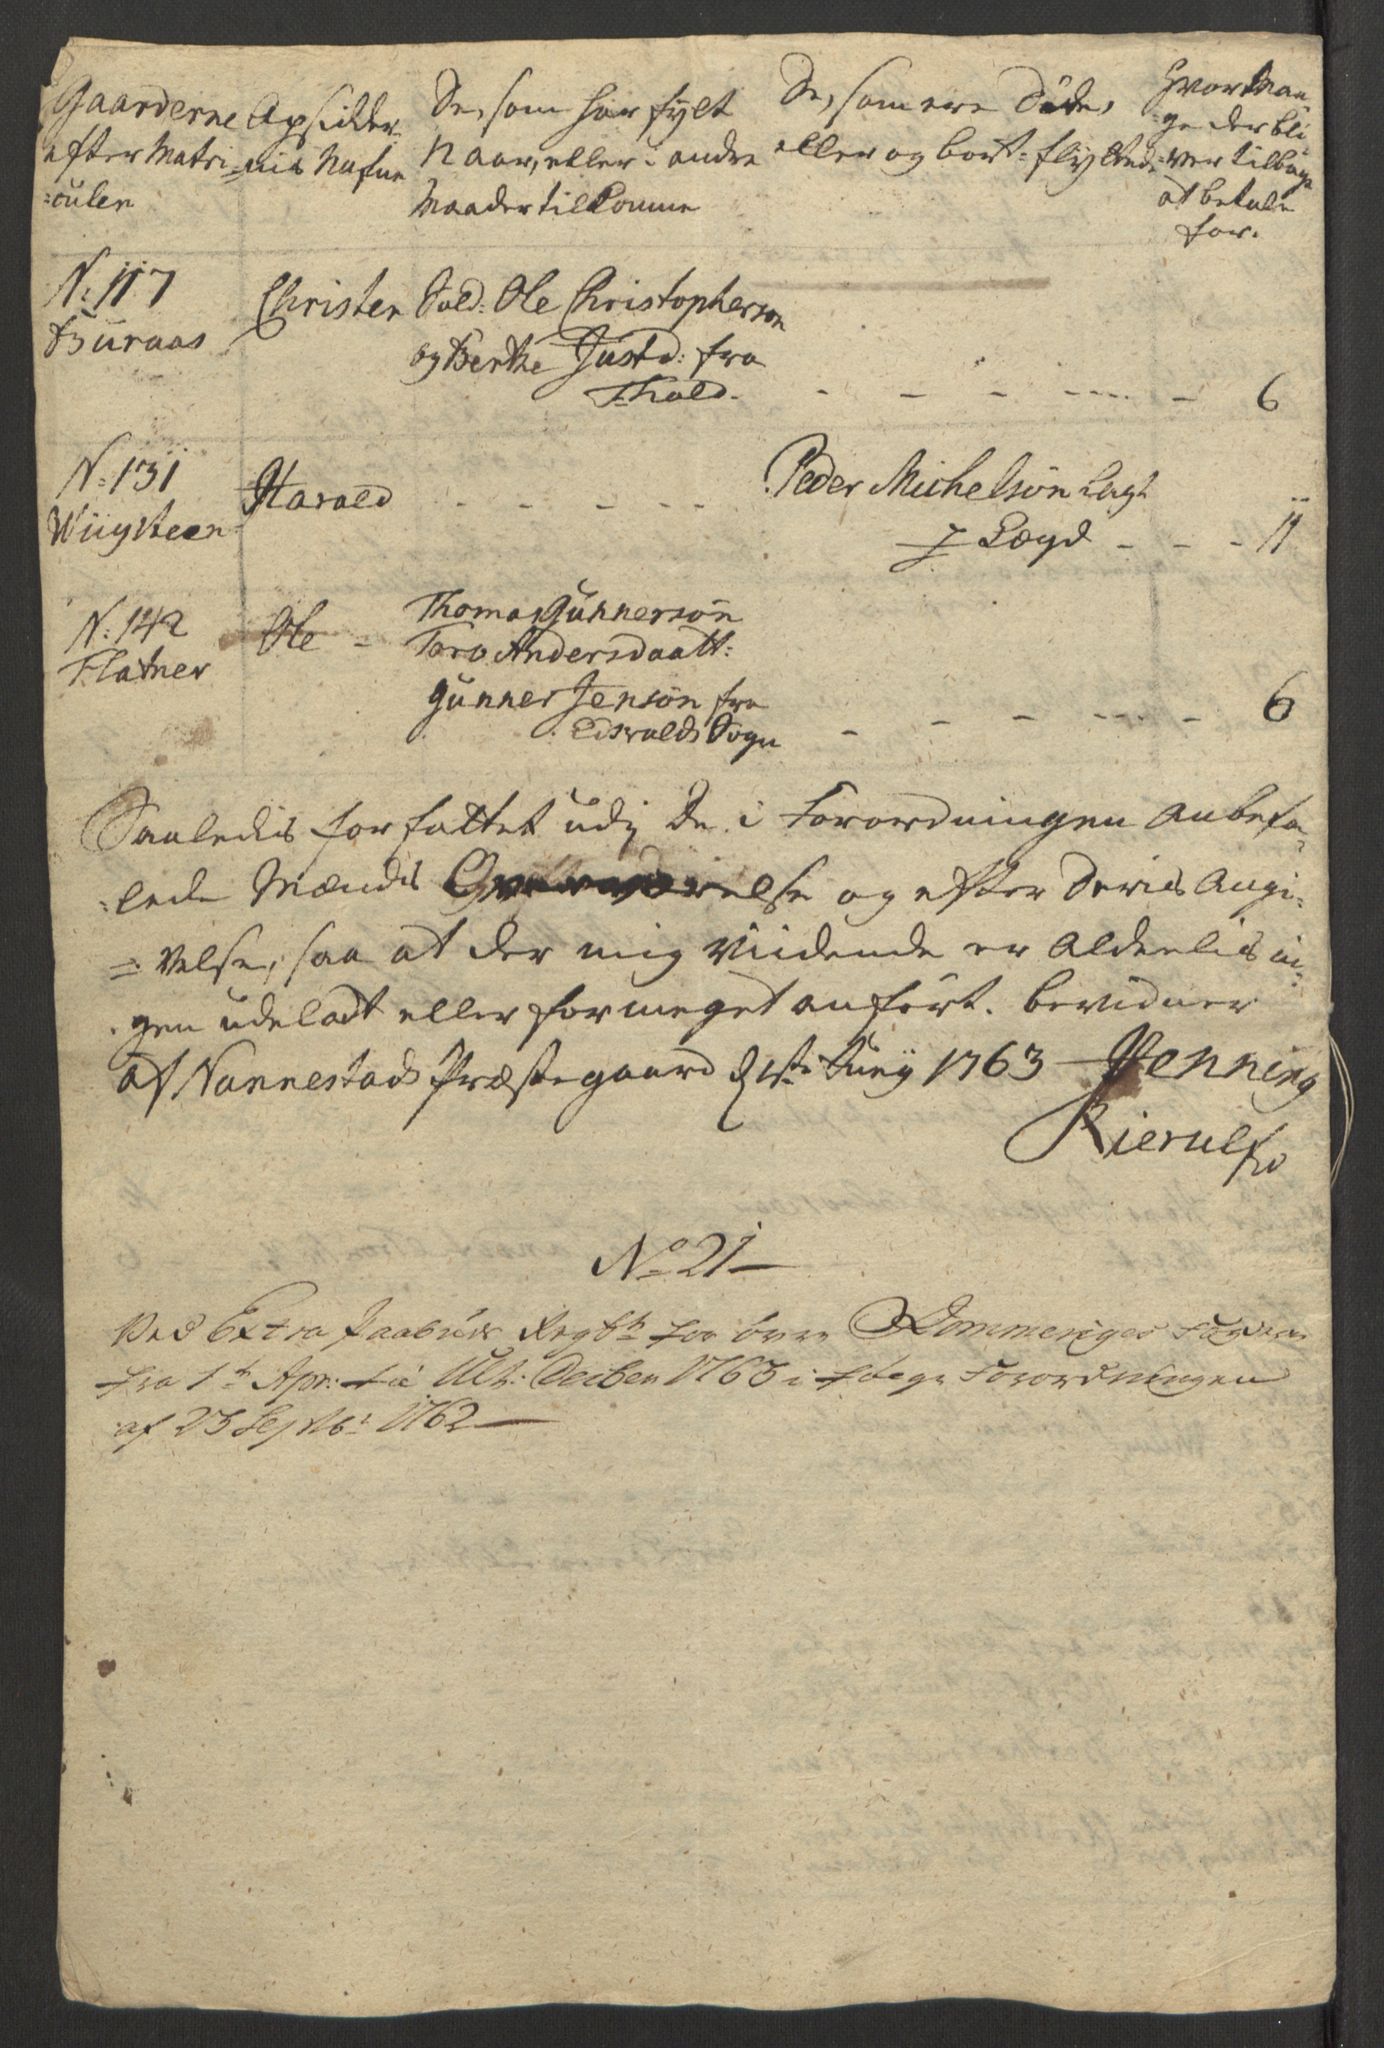 Gaarderne
efter Matri-
=culen
Opsidder-
nis Nafne
De, som har fylt
12 aar, eller i andre
Maader tilkomne
De, som ere Døde,
eller og bort=flyttede
Hvor Man-
ge der bli-
ver tilbage
at betale
for.
N: 117
Buraas
Christen
Sold: Ole Christopherson
og Berthe Justd: fra
Thold.
- - - - - 6
N: 131
Wiigsteen
Harald - - - - -
Peder Michelsøn lagt
i Lægd - - - 11
N: 142
Flatner
Ole -
Thomas Gunnersøn
Toro Andersdaatt:
Gunner Jensøn fra
Eidsvolds Sogn
- - - - - 6
Saaledis forfattet udj de i Forordningen Anbefa-
=lede Mænds Overværelse og efter Deris Angi-
=velse, saa at der mig Vidende er Aldeelis in-
gen udeladt eller formeget anført. bevidner
af Nannestads Præstegaard d 1ste Junij 1763 Henning
Kierulf
No 21
Ved Extra Skattens Regsk: for øvre Rommeriges Fogderie
fra 1te Apr: til Ult: Decben 1763 i følge Forordningen
af 23 Septbr 1762